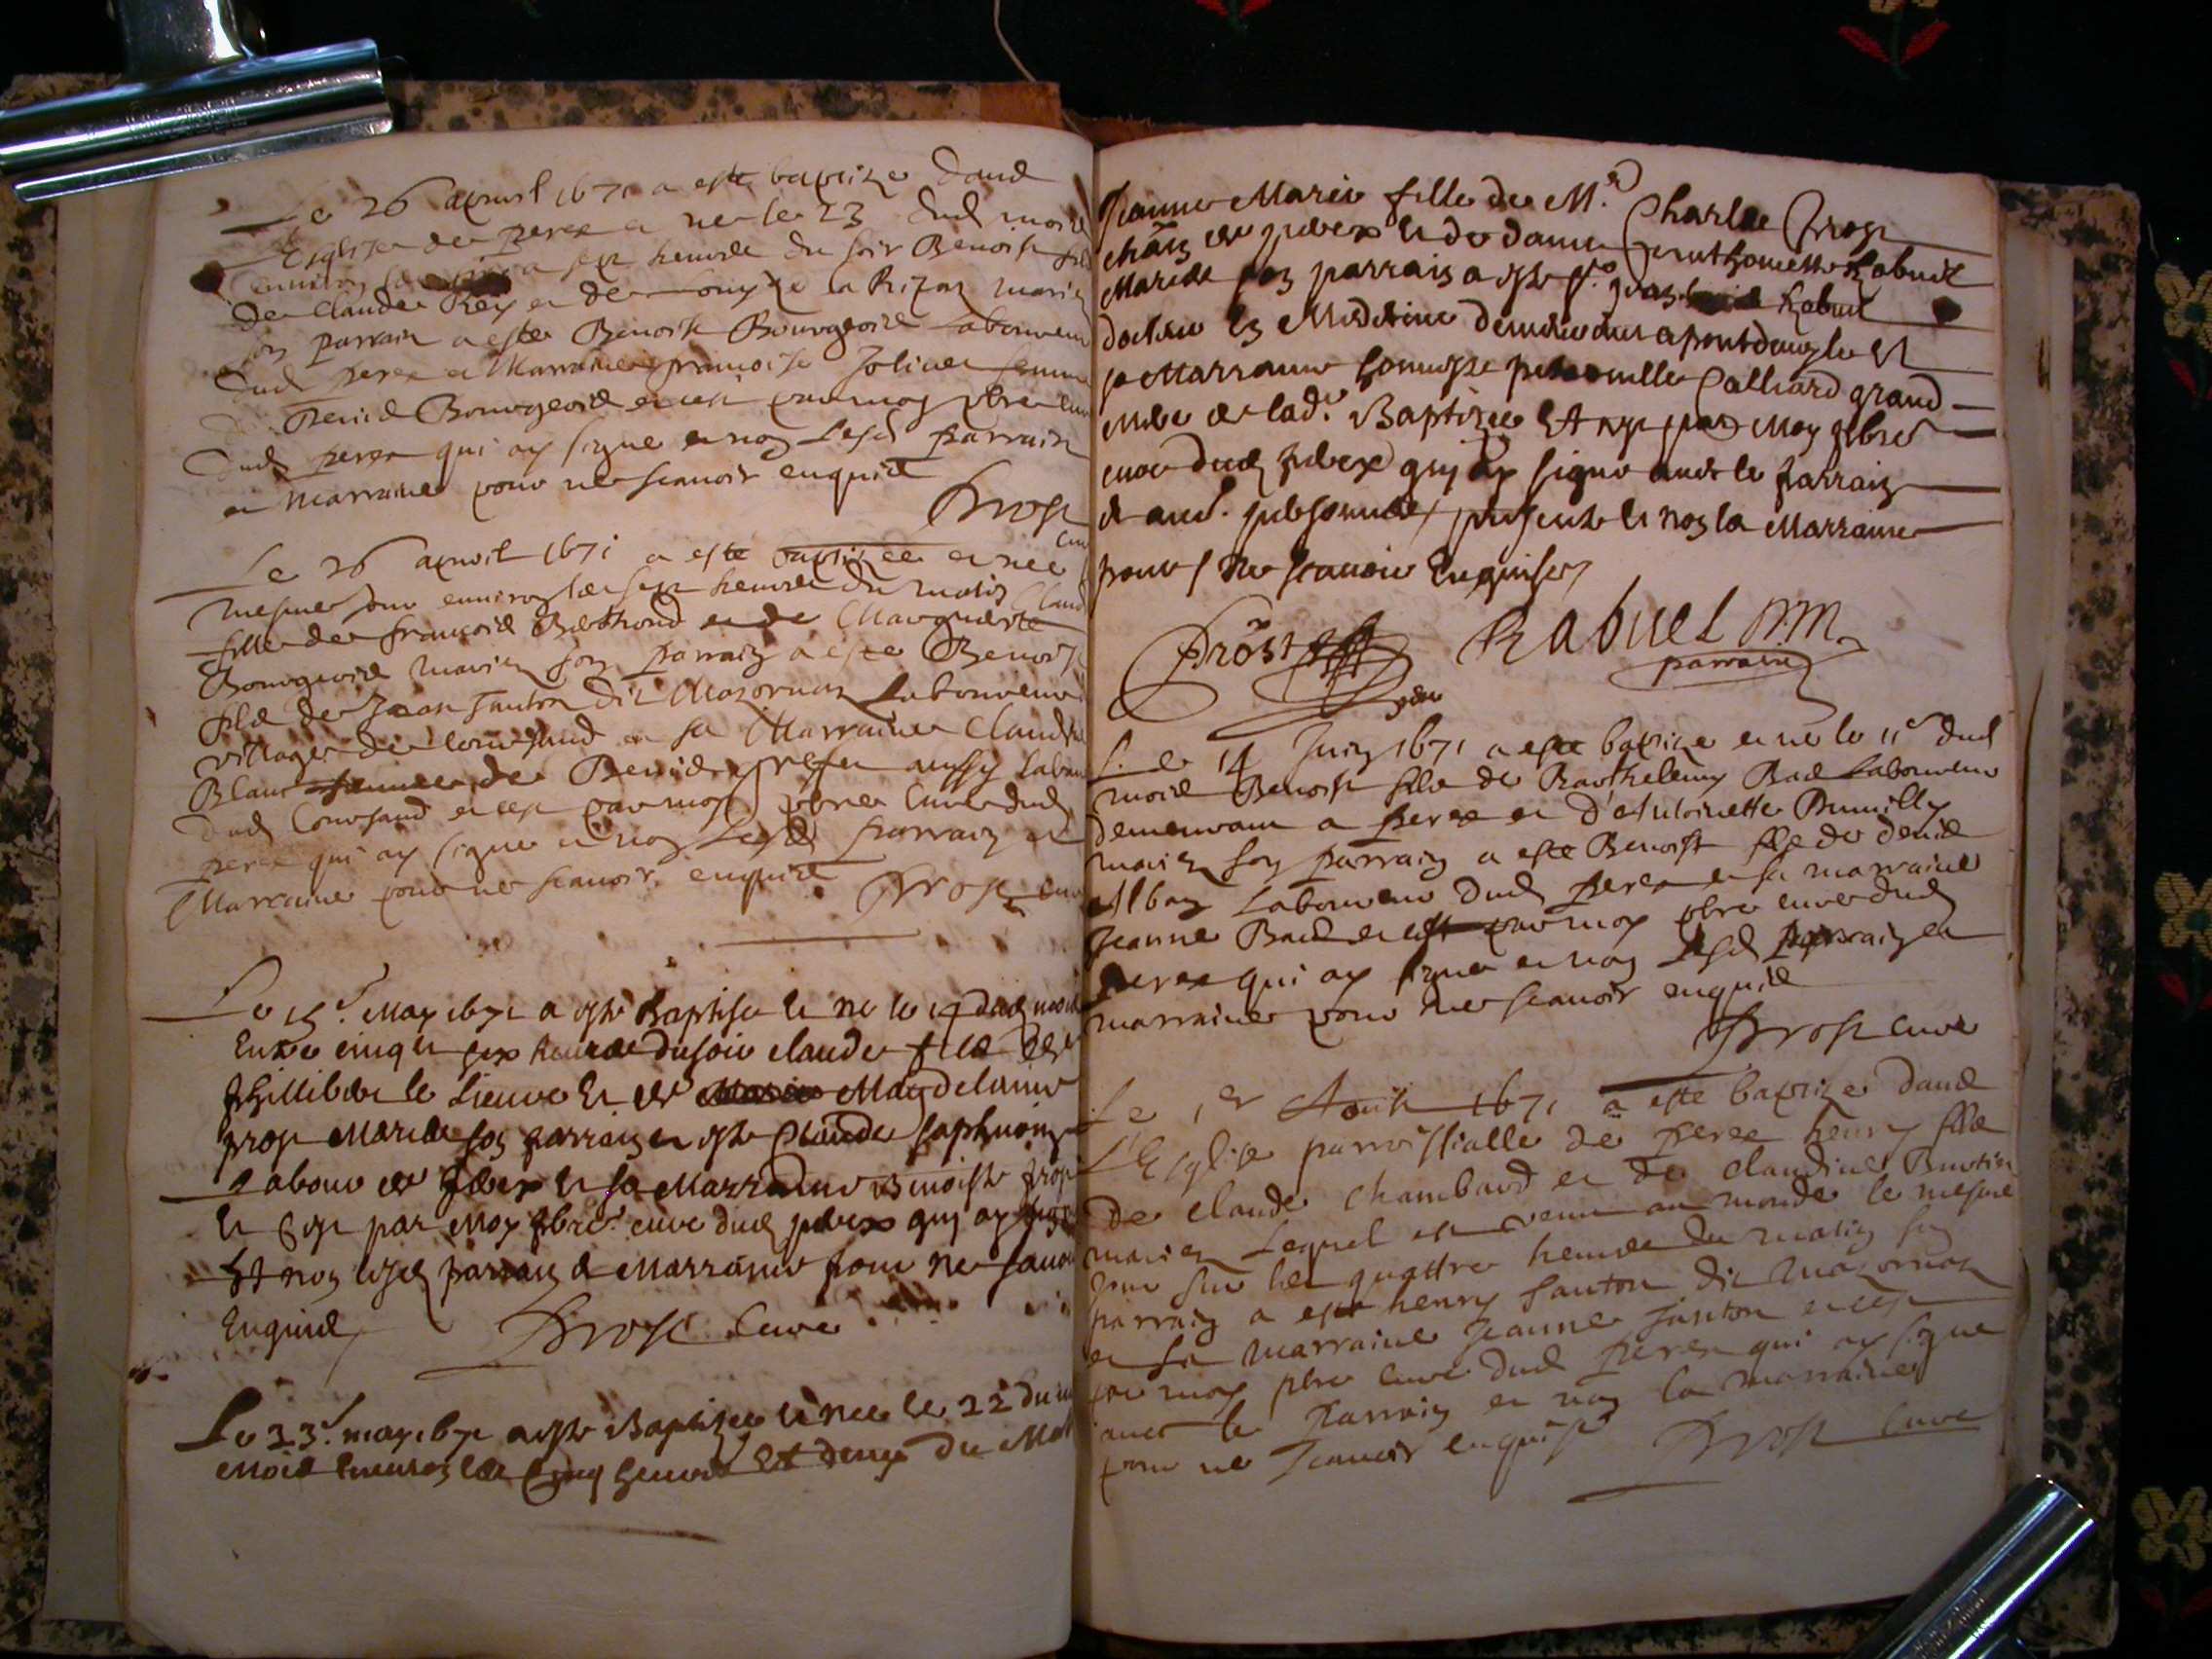 Le 26 apvril 1671 a este baptize dans
L'Esglise de perex et ne le 23 dud mois
environ a sept heures du soir Benoist filz
de Claude Rey et de la Rizon mariez
son parrain a este Benoist Bourgeois Laboureur
dud perex et Marraine françoise Jolivet femme
Benoid Bourgeois et cest par moy pbre cure
dud perex qui ay signe et non lesd parrain
et Marraine pour ne scavoir enquis
Prost
Le 26 apvril 1671 a este baptizee et nee
mesme jour environ les sept heures du matin Claud
fille de françois Berthoud et de Marguerite
Bourgeois mariez son parrain a este Benoist
filz de Jean Janton dit Mazornoz Laboureur
village de Consand et sa Marraine Claudine
Blanc femme de Benoid aussy Labour
dud Consand et cest par moy pbre cure dud
perex qui ay signe et non lesd parrain et
Marraine pour ne scavoir enquis
Prost cure
Le 15e May 1671 a este Baptise et ne le 14 dud mois
Entre cinq et six heures du soir claude filz de
philliber le Lieuvre et de Magdelaine
prost Maries son parrain a este Claude
Labour de perex et sa Marraine Benoiste prost
Et cest par Moy pbre cure dud perex quy ay signe
Et non lesd parrain et Marraine pour ne scavoir
Enquis
Prost Cure
Le 23e may 1671 a este Baptizee et nee le 22 du
Mois environ les cinq heures Et demy du Mat
Jeanne Marie fille de Mr Charles Prost
chãn de perex et de dame pruthomette Rabuel
Maries son parrain a este Sr Jean Rabuel
docteur en Medecine demeurant a pontdevesle Et
sa Marraine honneste petronille Calliard grand
mere de lad. Baptizee Et cest par Moy pbre
cure dud perex quy ay signe avec le parrain
et presents et non la Marraine
pour ne scavoir Enquise
Prost Rabuel D.M.
parrain
Le 14 Juin 1671 a este baptize et ne le 11e dud
mois Benoist filz de Barthelemy Bad Laboureur
demeurant a perex et d'Antoinette Dumilly
mariez son parrain a este Benoist filz de denis
Alban Laboureur dud perex et sa marraine
Jeanne Bad et cest par moy pbre cure dud
perex qui ay signe et non lesd parrain et
marraine pour ne scavoir enquis
Prost cure
Le 1er Aoust 1671 a este baptize dans
L'Esglise parroissialle de perex henry filz
de claude Chambard et de claudine Burtin
mariez Lequel est venu au monde le mesme
jour sur les quattre heures du matin son
parrain a este henry Janton dit Mazornoz
et sa marraine Jeanne Janton et cest
par moy pbre cure dud perex qui ay signe
avec le parrain et non la marraine
pour ne scavoir enquise
Prost Cure